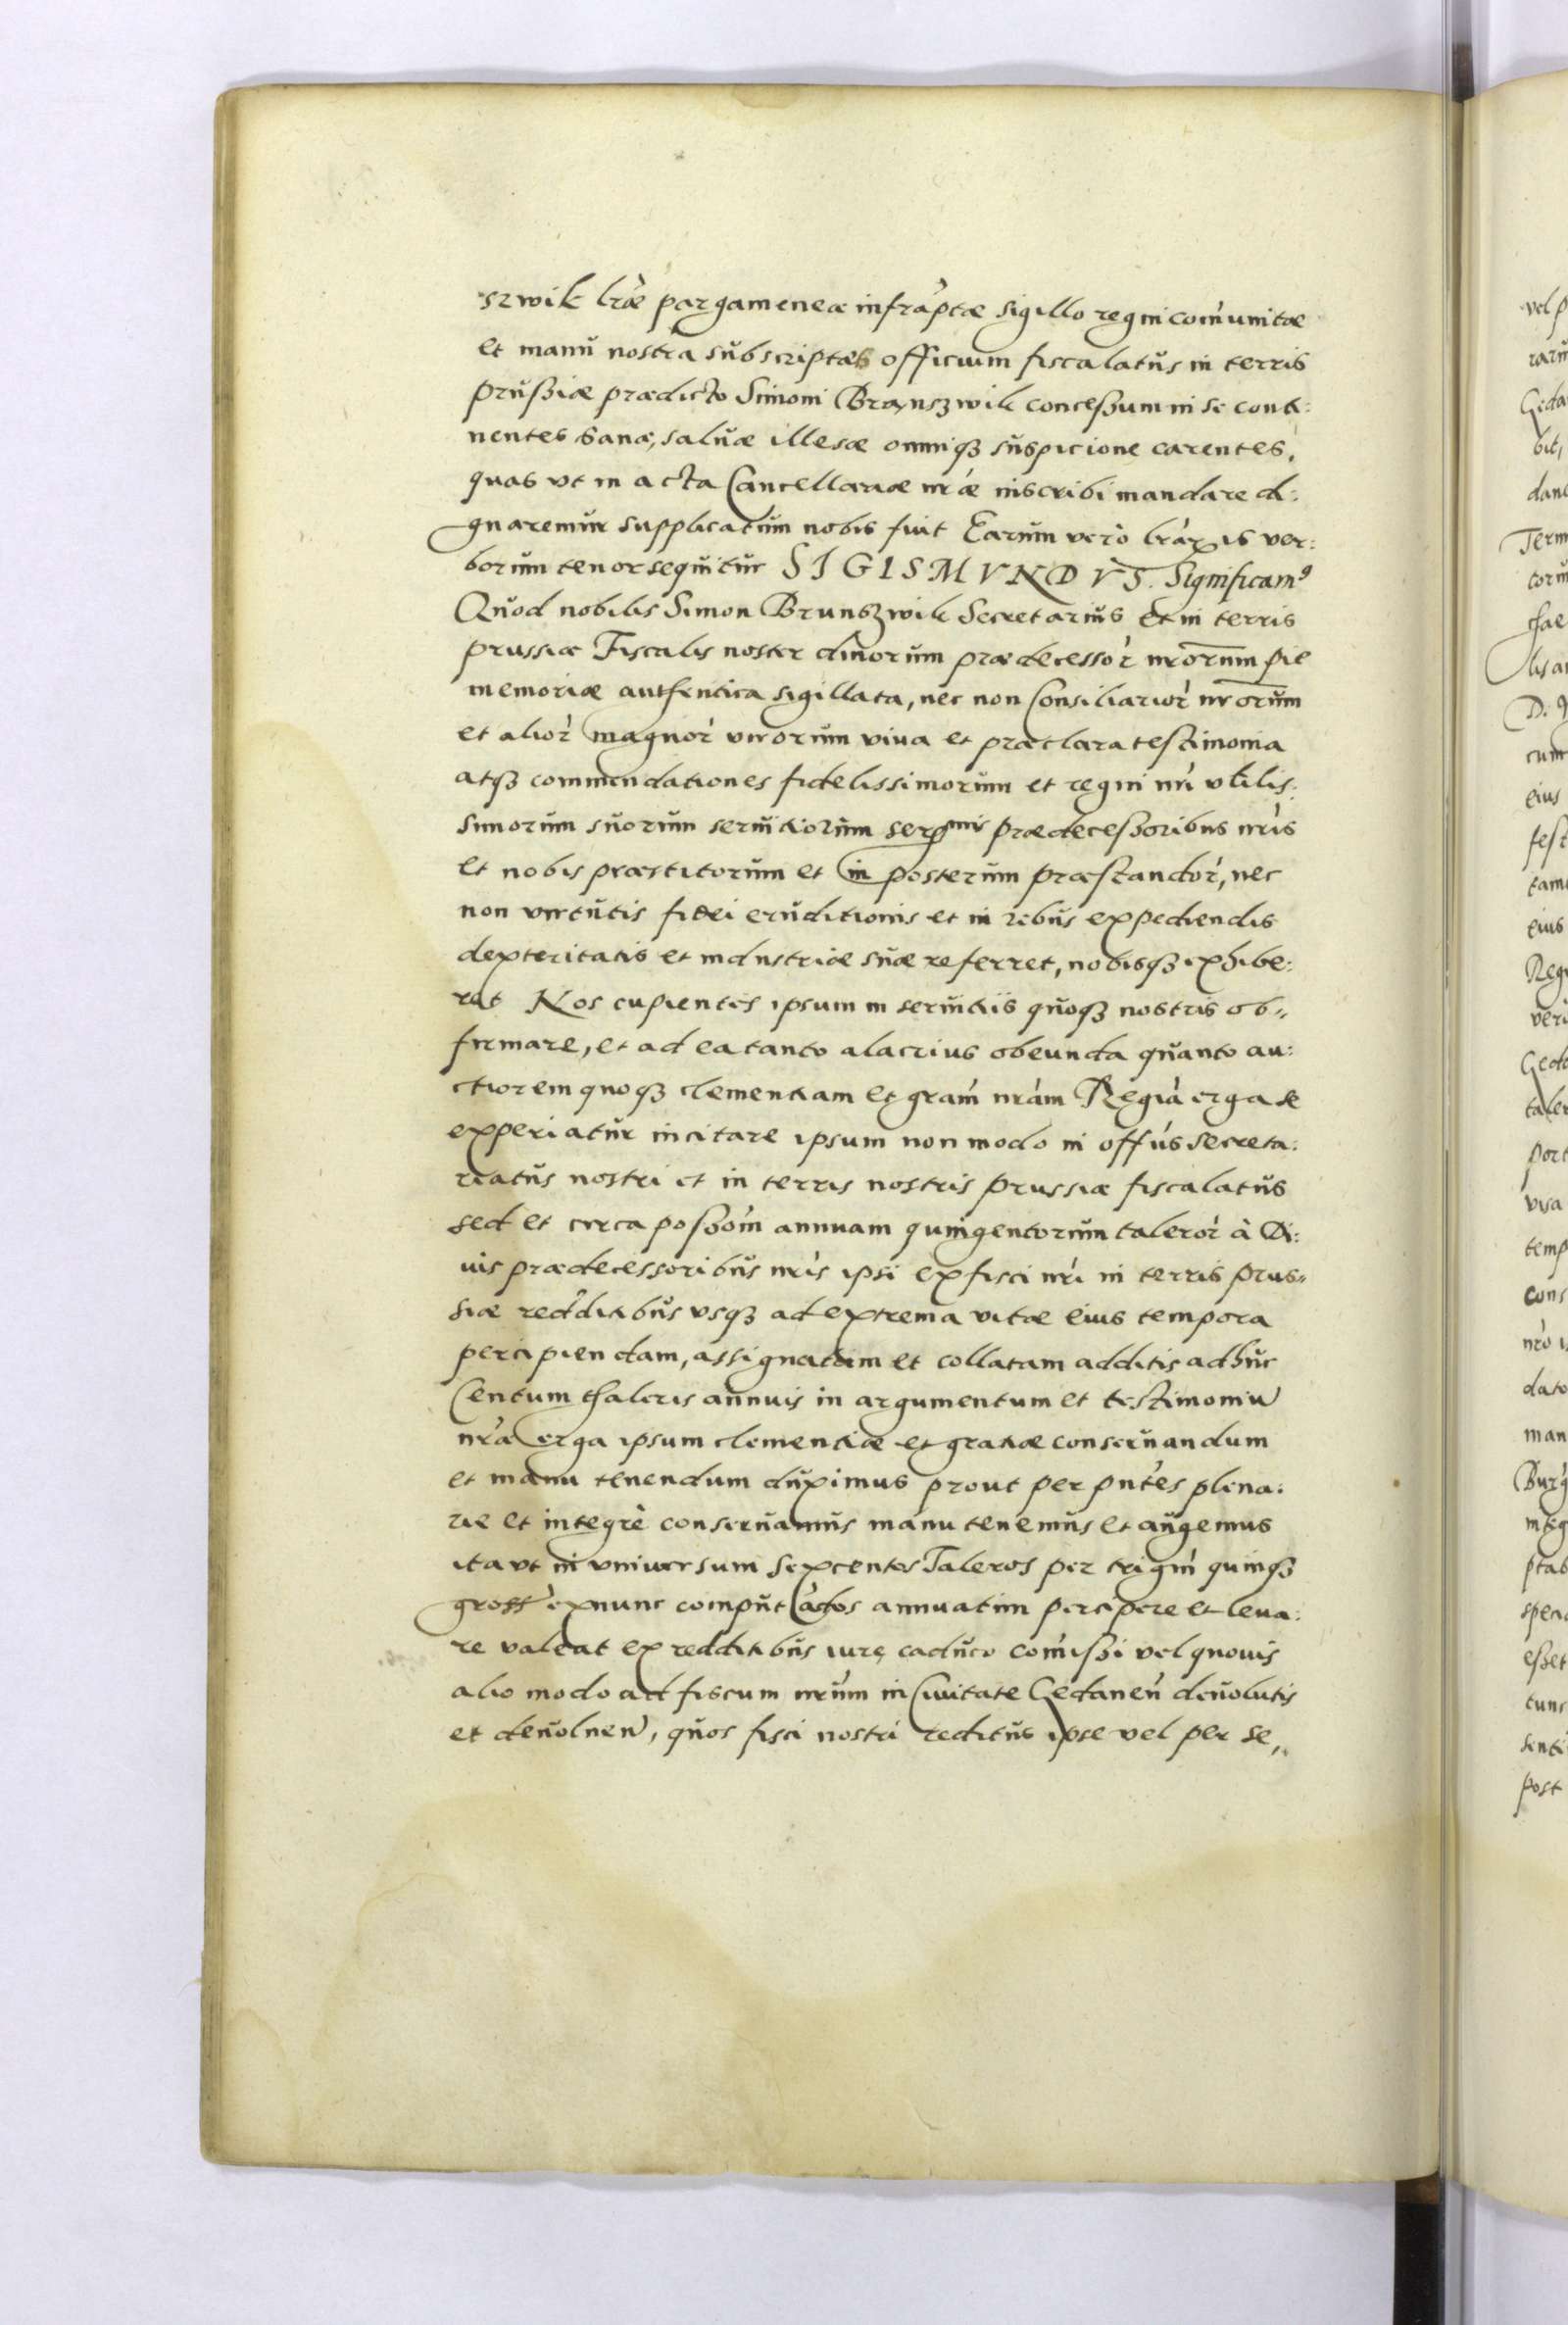 szwik lræ pargameneæ infraptæ sigillo regni com̃unitæ
et manu nostra subscriptæs officium fiscalatus in terris
prußiæ prædicto Simoni Brąnszwik conceßum in se conti:
nentes sanæ, saluæ illesæ omniqȝ suspicione carentes,
quas vt in acta Cancellariæ nræ inscribi mandare di:
gnaremur supplicatum nobis fuit Earum vero lrarꝫ is ver:
borum tenor sequitur SIGISMVNDVS. Significamꝰ
Quod nobilis Simon Brunszwik Secretarius Et in terris
prussiæ Fiscalis noster diuorum prædecessor̀ nrorum pie
memoriæ authentica sigillata, nec non Consiliarior̀ nrorum
et alior̀ magnor̀ virorum viua et præclara testimonia
atqȝ commendationes fidelissimorum et regni nri vtilis:
simorum suorum seruitiorum serꝫmis prædeceßoribus nris
et nobis præstitorum et in posterum præstandor̀, nec
non virtutis fidei eruditionis et in rebus expediendis
dexteritatis et industriæ suæ referret, nobisqȝ exhibe:
ret Nos cupientes ipsum in seruitiis quoqȝ nostris ob„
firmare, et ad ea tanto alacrius obeunda quanto au:
ctiorem quoqȝ clementiam et gram̀ nram̀ Regia̓ erga se
experiatur incitare ipsum non modo in offus secreta:
riatus nostri et in terris nostris prussiæ fiscalatus
sed et circa poßom̀ annuam quingentorum taleror̀ à Di:
uis prædecessoribus nris ipsi ex fisci nri in terris prus„
siæ redditibus vsqȝ ad extrema vitæ eius tempora
percipiendam, assignatam et collatam additis adhuc
Centum thaleris annuis in argumentum et testimoniu
nræ erga ipsum clementiæ et gratiæ conseruandum
et manu tenendum duximus prout per pntes plena:
rie et integrè conseruamus manu tenemus et augemus
ita vt in vniuersum sexcentos Taleros per trigin̓ quinqȝ
gross̓ exnunc computàdos annuatim percipere et leua:
re valeat ex redditibus iure caduco com̓ißi vel quouis
alio modo ad fiscum nrum in Ciuitate Gedanen̓ deuolutis
et deuoluen, quos fisci nostri reditus ipse vel per se,,
vel p
rarum
Geda
bit,
dane
Term
torum
thae
lis an
D. q
cum
eius
fest
tam
eius
Reg
veri
Geda
taler
port
visa
temp
cons
nro i
dato
man
Burg
integ
ptas
speci
eßet
tunc
senti
post